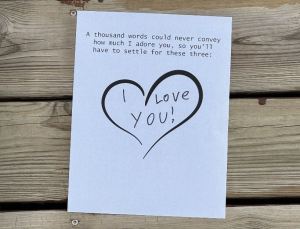 A thousand words could never convey
how much I adore you, so you'll
have to settle for these three:
I Love
YOU!